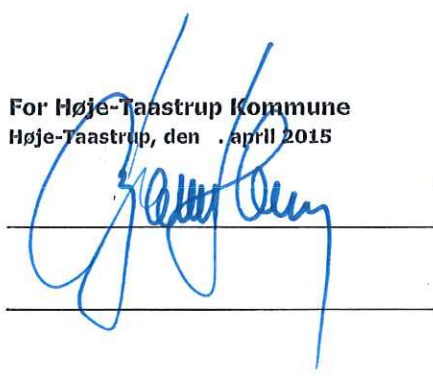 For Høje-Taastrup Kommune
Høje-Taastrup, den . april 2015